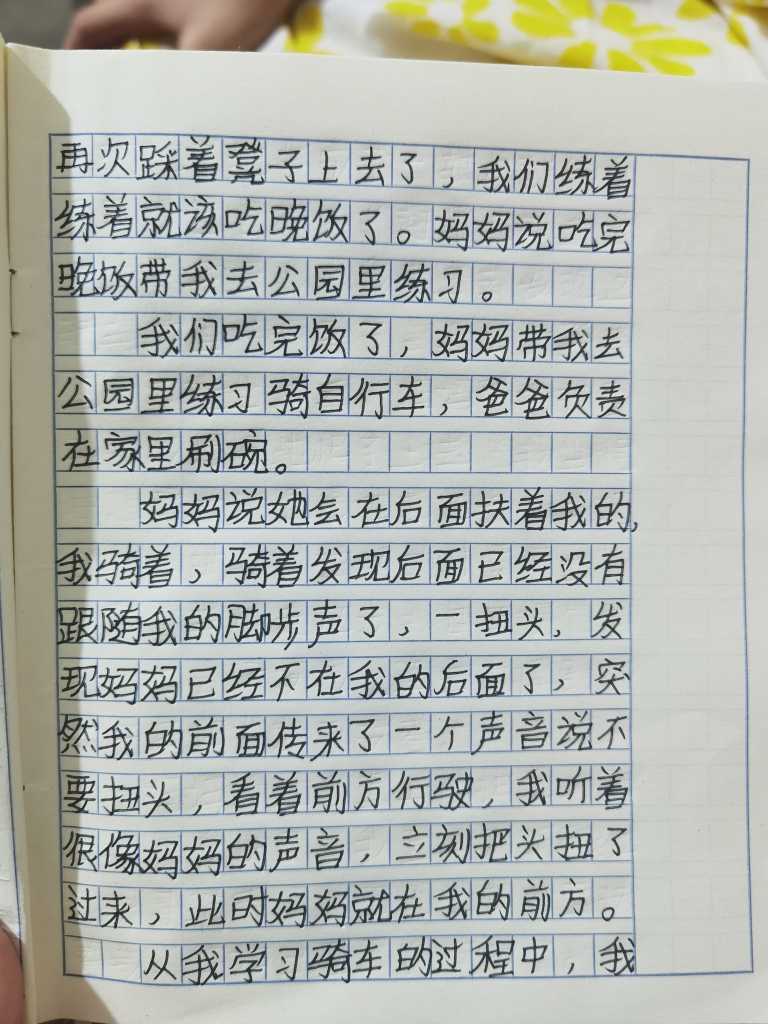 再次踩着凳子上去了，我们练着
练着就该吃晚饭了。妈妈说吃完
晚饭带我去公园里练习。
我们吃完饭了，妈妈带我去
公园里练习骑自行车，爸爸负责
在家里刷碗。
妈妈说她会在后面扶着我的，
我骑着，骑着发现后面已经没有
跟随我的脚步声了，一扭头，发
现妈妈已经不在我的后面了，突
然我的前面传来了一个声音说不
要扭头，看着前方行驶，我听着
很像妈妈的声音，立刻把头扭了
过来，此时妈妈就在我的前方。
从我学习骑车的过程中，我